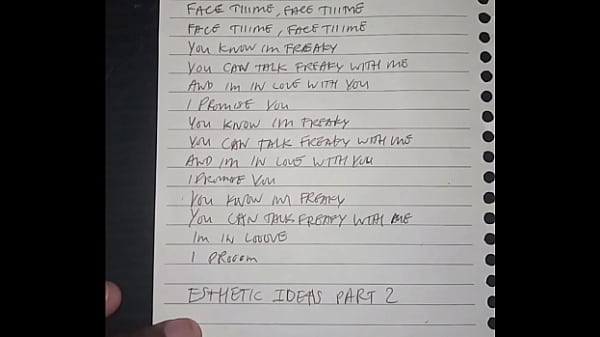 FACE TIIIME, FACE TIIIME
FACE TIIIME, FACE TIIIME
YOU KNOW IM FREAKY
YOU CAN TALK FREAKY WITH ME
AND IM IN LOVE WITH YOU
I PROMISE YOU
YOU KNOW IM FREAKY
YOU CAN TALK FREAKY WITH ME
AND IM IN LOVE WITH YOU
I PROMISE YOU
YOU KNOW IM FREAKY
YOU CAN TALK FREAKY WITH ME
IM IN LOOOVE
I PROOOM
ESTHETIC IDEAS PART 2